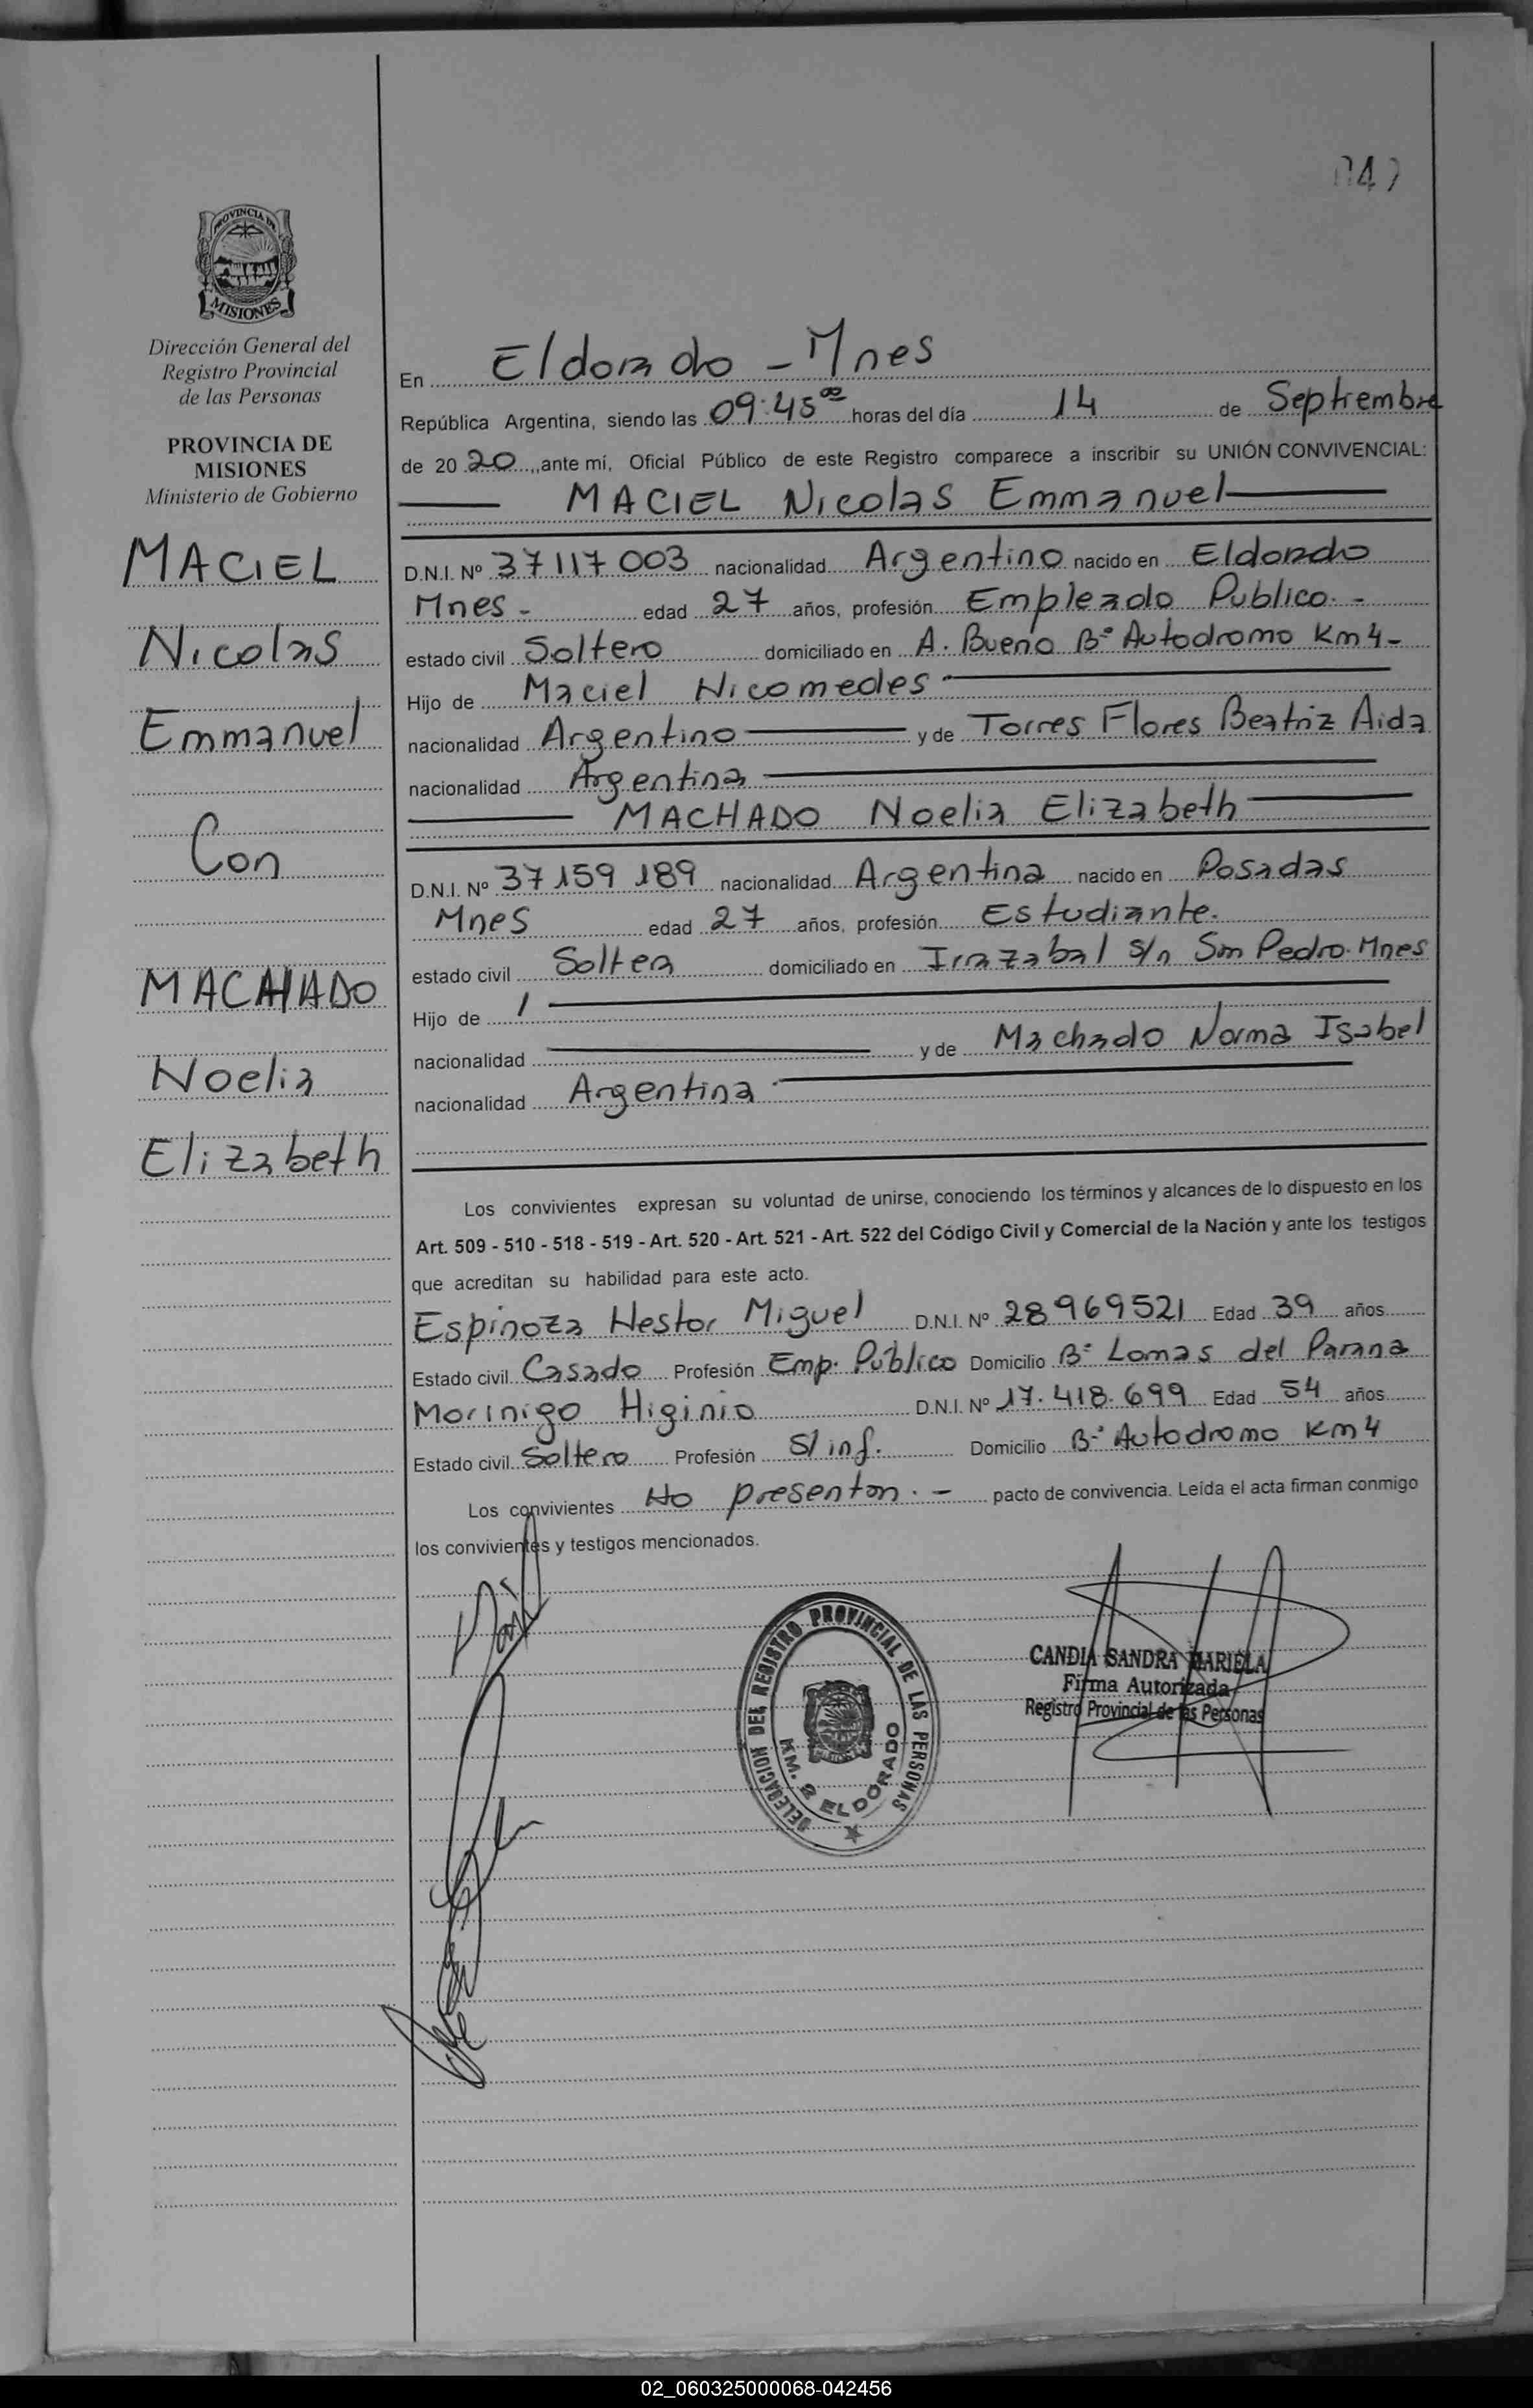 PROVINCIA DE
MISIONES
Dirección General del
Registro Provincial
de las Personas
PROVINCIA DE
MISIONES
Ministerio de Gobierno
MACIEL
Nicolas
Emmanuel
Con
MACHADO
Noelia
Elizabeth
En Eldorado - Mnes
República Argentina, siendo las 09:45 horas del día 14 de Septiembre
de 20 20, ante mí, Oficial Público de este Registro comparece a inscribir su UNIÓN CONVIVENCIAL:
MACIEL Nicolas Emmanuel
D.N.I. Nº 37117003 nacionalidad Argentino nacido en Eldorado
Mnes - edad 27 años, profesión Empleado Publico. -
estado civil Soltero domiciliado en A. Bueno Bº Autodromo Km 4 -
Hijo de Maciel Nicomedes
nacionalidad Argentino y de Torres Flores Beatriz Aida
nacionalidad Argentina
MACHADO Noelia Elizabeth
D.N.I. Nº 37159189 nacionalidad Argentina nacido en Posadas
Mnes edad 27 años, profesión Estudiante.
estado civil Soltera domiciliado en Irrazabal s/n San Pedro. Mnes
Hijo de /
nacionalidad y de Machado Norma Isabel
nacionalidad Argentina
Los convivientes expresan su voluntad de unirse, conociendo los términos y alcances de lo dispuesto en los
Art. 509 - 510 - 518 - 519 - Art. 520 - Art. 521 - Art. 522 del Código Civil y Comercial de la Nación y ante los testigos
que acreditan su habilidad para este acto.
Espinoza Hestor Miguel D.N.I. Nº 28969521 Edad 39 años
Estado civil Casado Profesión Emp. Publico Domicilio Bº Lomas del Parana
Morinigo Higinio D.N.I. Nº 17.418.699 Edad 54 años
Estado civil Soltero Profesión S/inf. Domicilio Bº Autodromo Km 4
Los convivientes No presentan. - pacto de convivencia. Leída el acta firman conmigo
los convivientes y testigos mencionados.
DELEGACION DEL REGISTRO PROVINCIAL DE LAS PERSONAS
KM. 2 ELDORADO
CANDIA SANDRA MARIELA
Firma Autorizada
Registro Provincial de las Personas
02_060325000068-042456